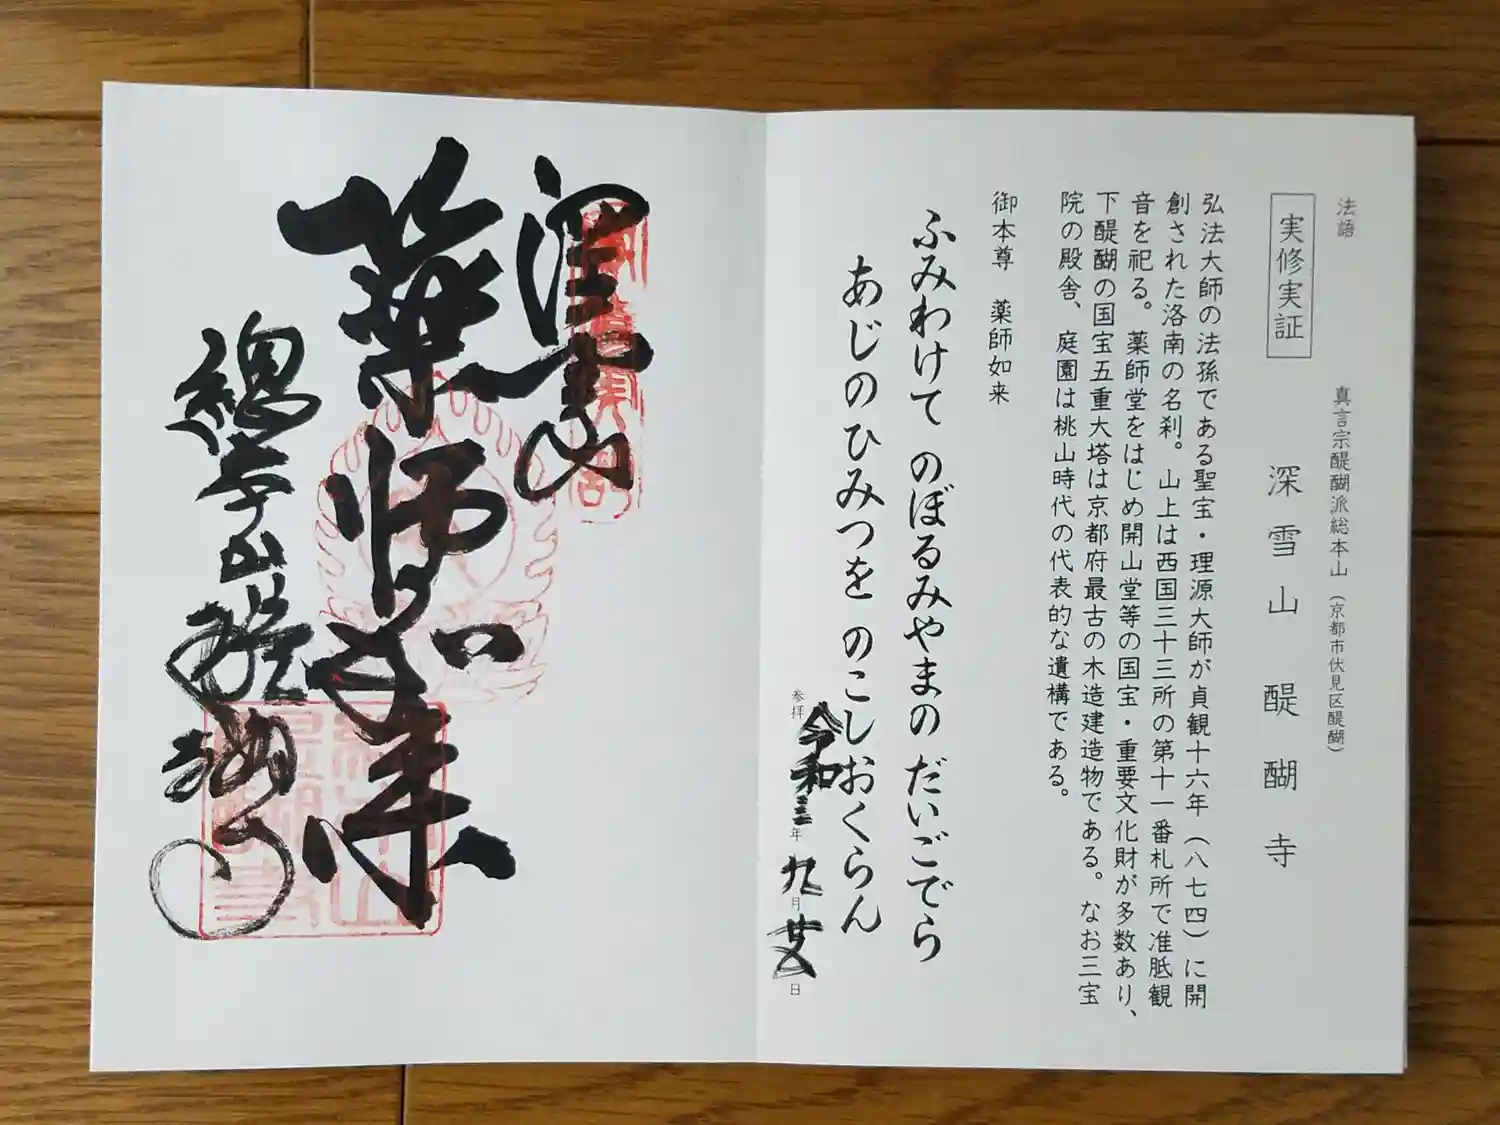 法語
真言宗醍醐派総本山（京都市伏見区醍醐）
実修実証
深雪山 醍醐寺
弘法大師の法孫である聖宝・理源大師が貞観十六年（八七四）に開
創された洛南の名刹。山上は西国三十三所の第十一番札所で准胝観
音を祀る。薬師堂をはじめ開山堂等の国宝・重要文化財が多数あり、
下醍醐の国宝五重大塔は京都府最古の木造建造物である。なお三宝
院の殿舎、庭園は桃山時代の代表的な遺構である。
御本尊 薬師如来
ふみわけて のぼるみやまの だいごでら
あじのひみつを のこしおくらん
参拝 令和三年 九月 日
深雪山
薬師如来
総本山醍醐寺